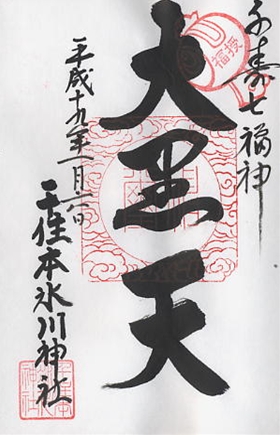 千寿七福神
福授
大黒天
平成十九年一月六日
千住本氷川神社